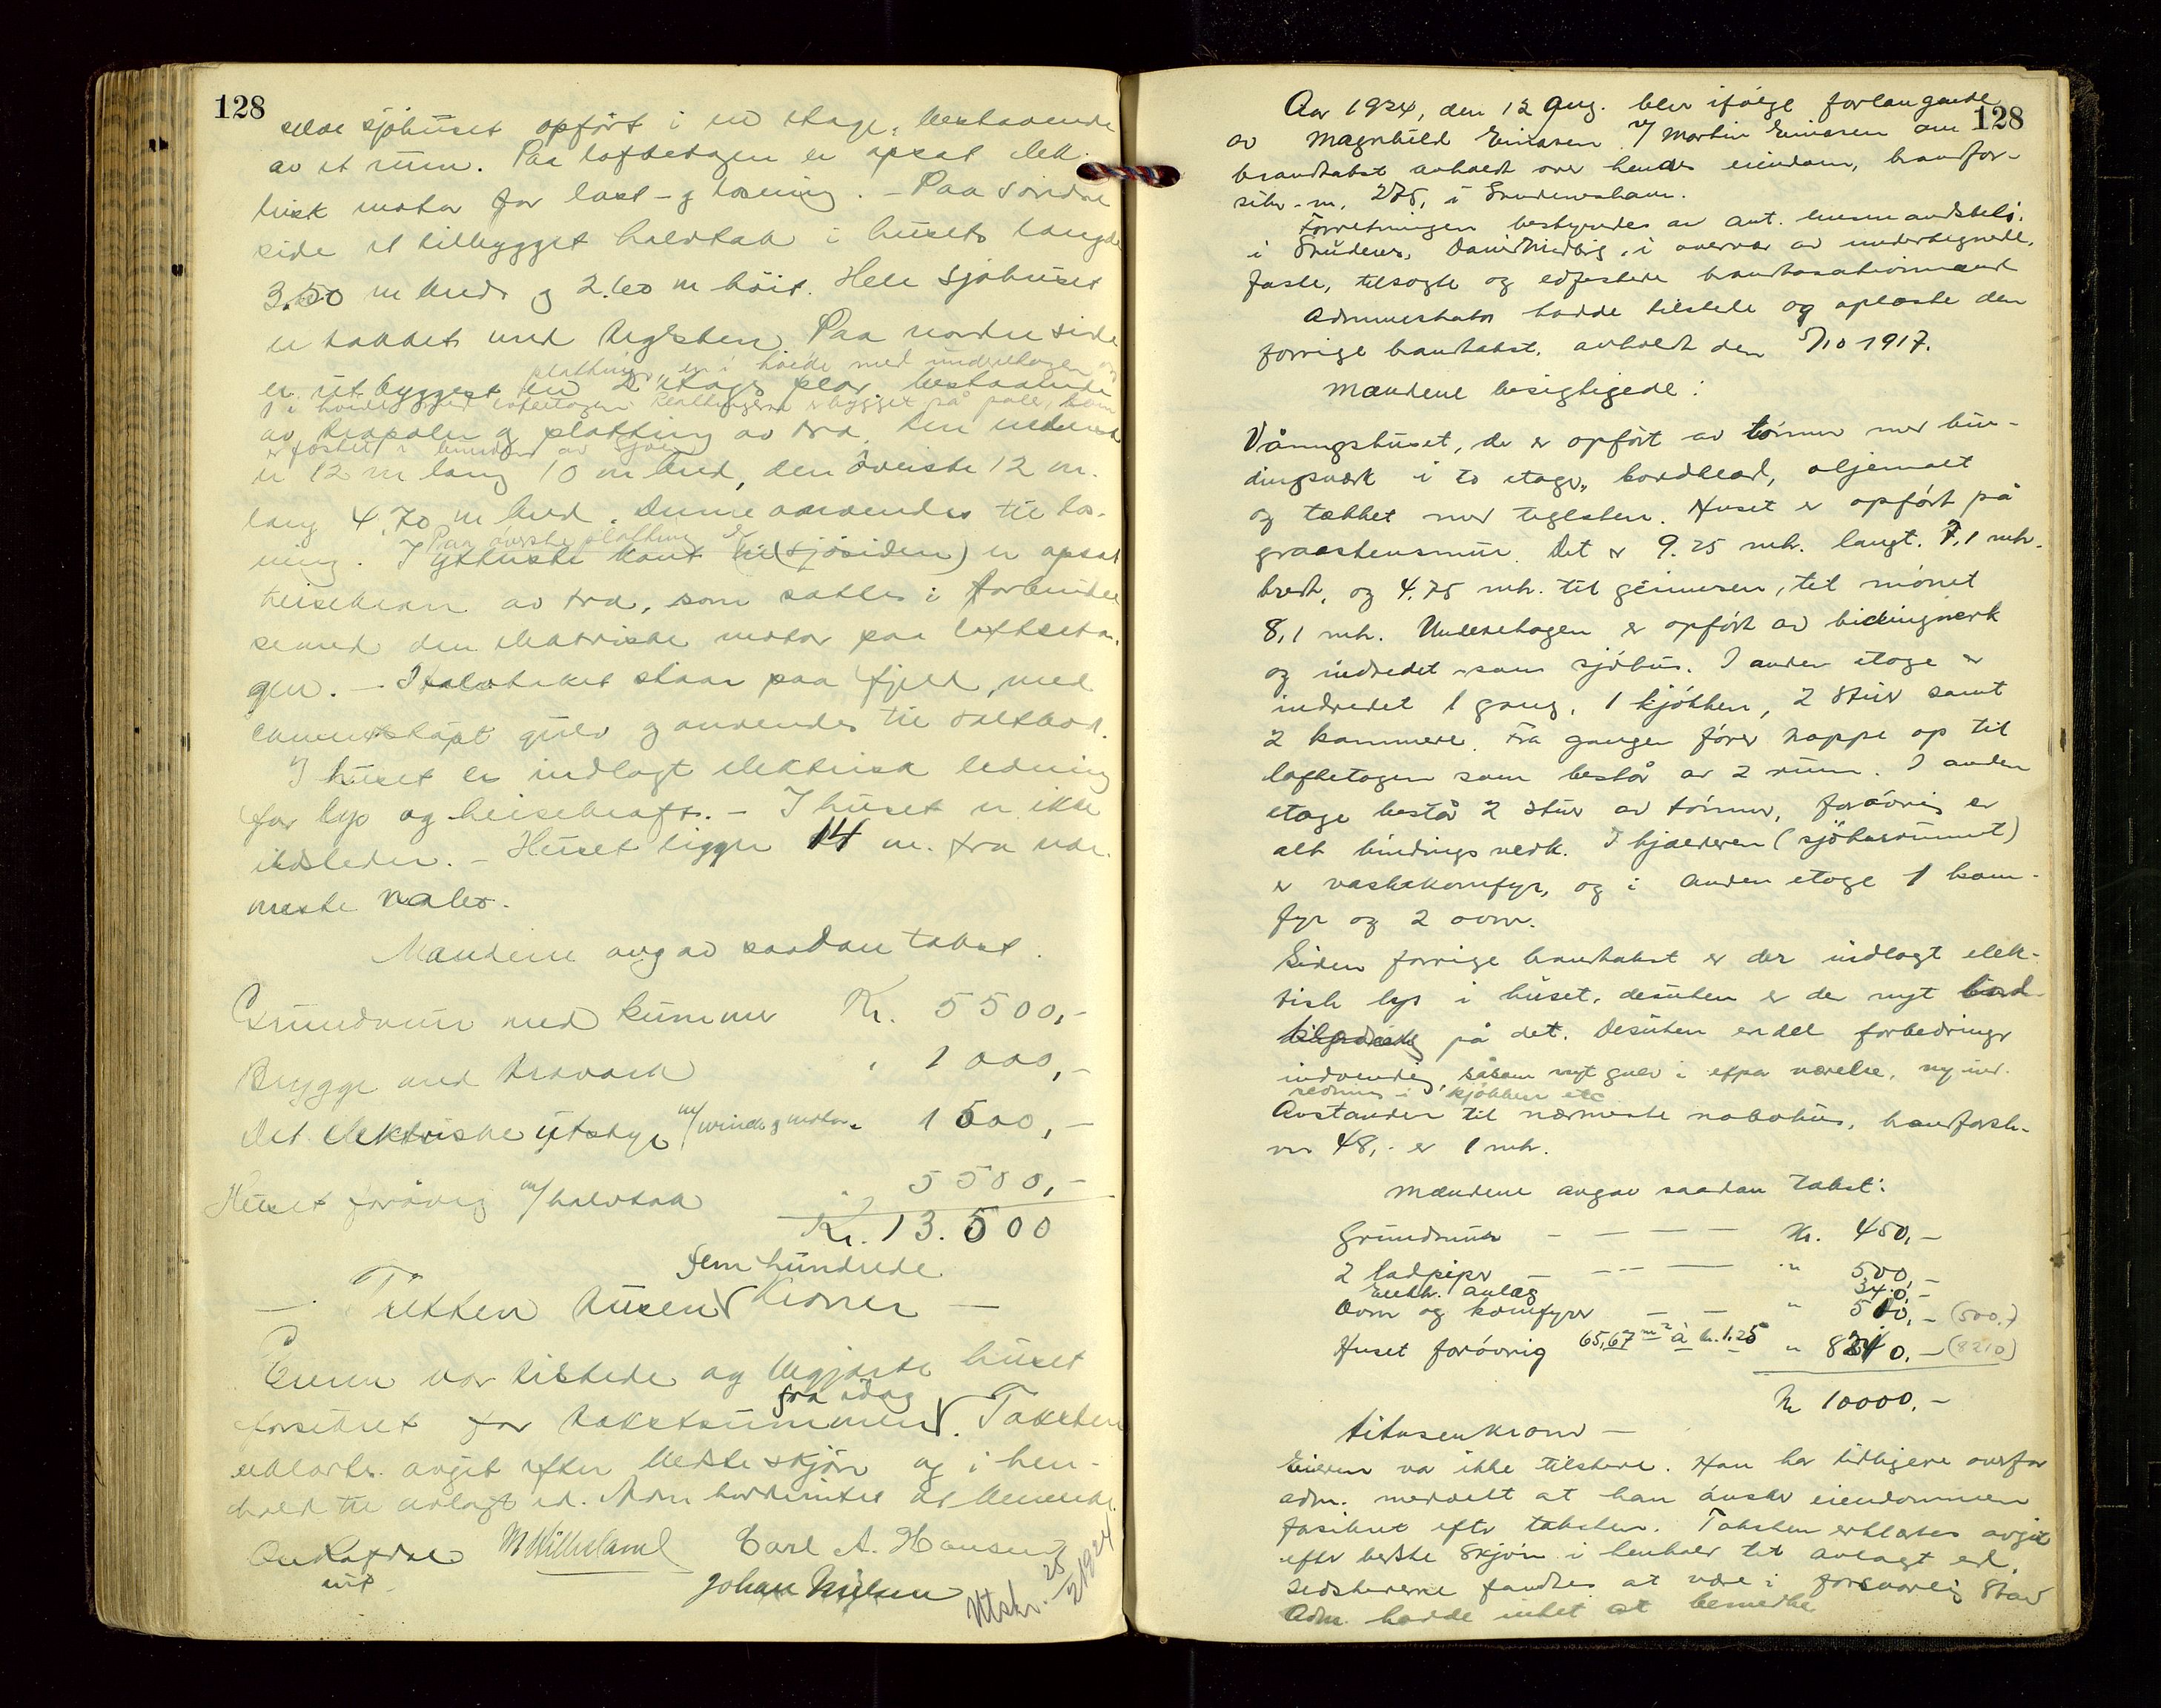 128
selve sjöhuset opfört i en etage, bestaaende
av et rum. Paa loftetagen er opsat elek-
trisk motor for last- og losning. - Paa söndre
side et tilbygget halvtak i husets længde
3.50 m bred og 2.60 m höit. Hele Sjöhuset
er takket med teglsten. Paa nordre side
plattningen er i höide med underetagen og
er utbygget en 2 etages plar, bestaaende
i höide med loftetagen. Plattingerne er bygget på pæle, som
av træpæler og platting av træ. Den nederste
er fæstet i bunden av sjöen
er 12 m lang 10 m bred, den överste 12 m.
lang 4.70 m bred. Denne anvendes til los-
Paa överste platting
ning. I ytterste kant til (sjösiden) er opsat
heisekran av træ, som sættes i forbindel
se med den elektriske motor paa loftseta-
gen. - Halvtaket staar paa fjeld, med
cementstöpt gulv og anvendes til saltbod.
I huset er indlagt elektrisk ledning
for lys og heisekraft. - I huset er ikke
ildsteder. - Huset ligger 14 m. fra nær-
meste nabo.
Mændene avgav saadan takst.
Grundmur med kummer Kr. 5500,-
Brygge med træværk " 1000,-
Det elektriske utstyr m/ winch og motor " 1500,-
Huset forövrig m/ halvtak " 5500,-
Kr. 13.500
fem hundrede
- Tretten tusen Kroner -
Eieren var tilstede og begjærte huset
fra idag
forsikret for takstsummen. Taksten
erklærtes avgit efter bedste skjön og i hen-
hold til avlagt ed. Adm. hadde intet at bemerke.
M Hillesland Carl A. Hansen
Johan Nielsen
Utskr. 25/2 1924
128
Aar 1924, den 12 Aug. blev ifölge forlangende
av Magnhild Einarsen v/ Martin Einarsen om
brandtakst avholdt over hendes eiendom, brandfor-
sikr. nr. 275, i Skudeneshavn.
Forretningen bestyredes av ant. lensmandsbetj.
i Skudenes, David Medbö, i overvær av undertegnede,
faste, tilsagte og edfæstede brandtaxationsmænd
Administrator hadde tilstede og oplæste den
forrige brandtakst, avholdt den 5/10 1917.
Mændene besigtigede:
Våningshuset, der er opfört av tömmer med bin-
dingsverk i to etager, bordklædt, oljemalt
og tækket med teglsten. Huset er opfört på
graastensmur. Det er 9.25 mtr. langt. 7,1 mtr.
bredt, og 4.75 mtr. til gesimsen, til mönet
8,1 mtr. Underetagen er opfört av bindingverk
og indredet som sjöhus. I anden etage er
indredet 1 gang, 1 kjökken, 2 stuer samt
2 kammere. Fra gangen förer trappe op til
loftetagen som består av 2 rum. I anden
etage består 2 stuer av tömmer, forövrig er
alt bindingsverk. I kjælderen (sjöhusrummet)
er vaskekomfyr, og i anden etage 1 kom-
fyr og 2 ovner.
Siden forrige brandtakst er der indlagt elek-
trisk lys i huset, desuten er der nyt bord-
på det. Desuten endel forbedringer
indvendig, såsom nyt gulv i et par værelser, ny ind-
redning i kjökken etc
Avstanden til nærmeste nabohus, brandforsk-
nr 48, - er 1 mtr.
Mændene avgav saadan takst:
Grundmur - - - - Kr. 450,-
2 ladpiper - - - - " 500,-
Elektr. anlæg 340,-
Ovner og komfyrer - - " 500,- (500,-)
Huset forövrig 65,67 m² à kr. 125 " 8210,- (8210)
Kr 10000,-
titusenkroner -
Eieren var ikke tilstede. Han har tidligere overfor
adm. meddelt at han önsker eiendommen
forsikret efter taksten. Taksten erklæres avgit
efter bedste skjön i henhold til avlagt ed.
Ildstederne fandtes at være i forsvarlig stand
Adm. hadde intet at bemerke